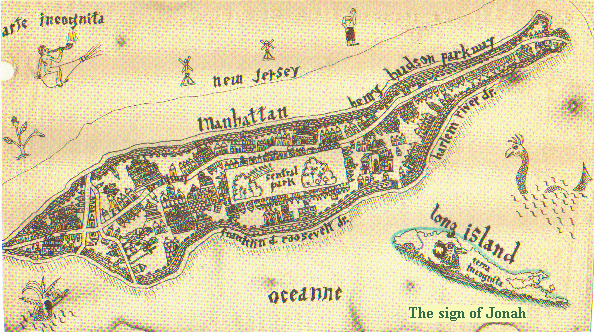 arte incognita
new jersey
manhattan
henry hudson parkway
harlem river dr.
central
park
franklin d. roosevelt dr.
long island
terra
incognita
oceanne
The sign of Jonah